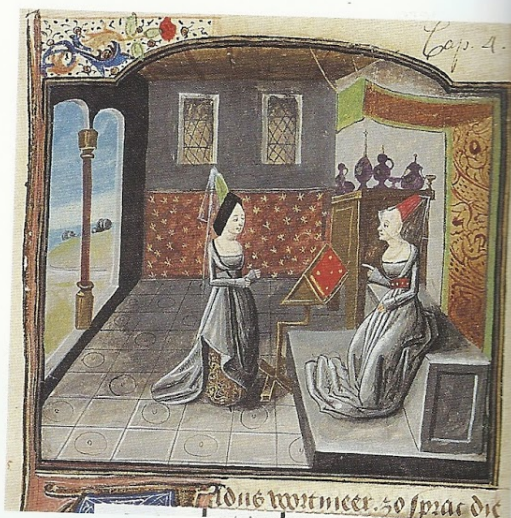 Cap. 4.
Aldus vortmeer. zo sprac die